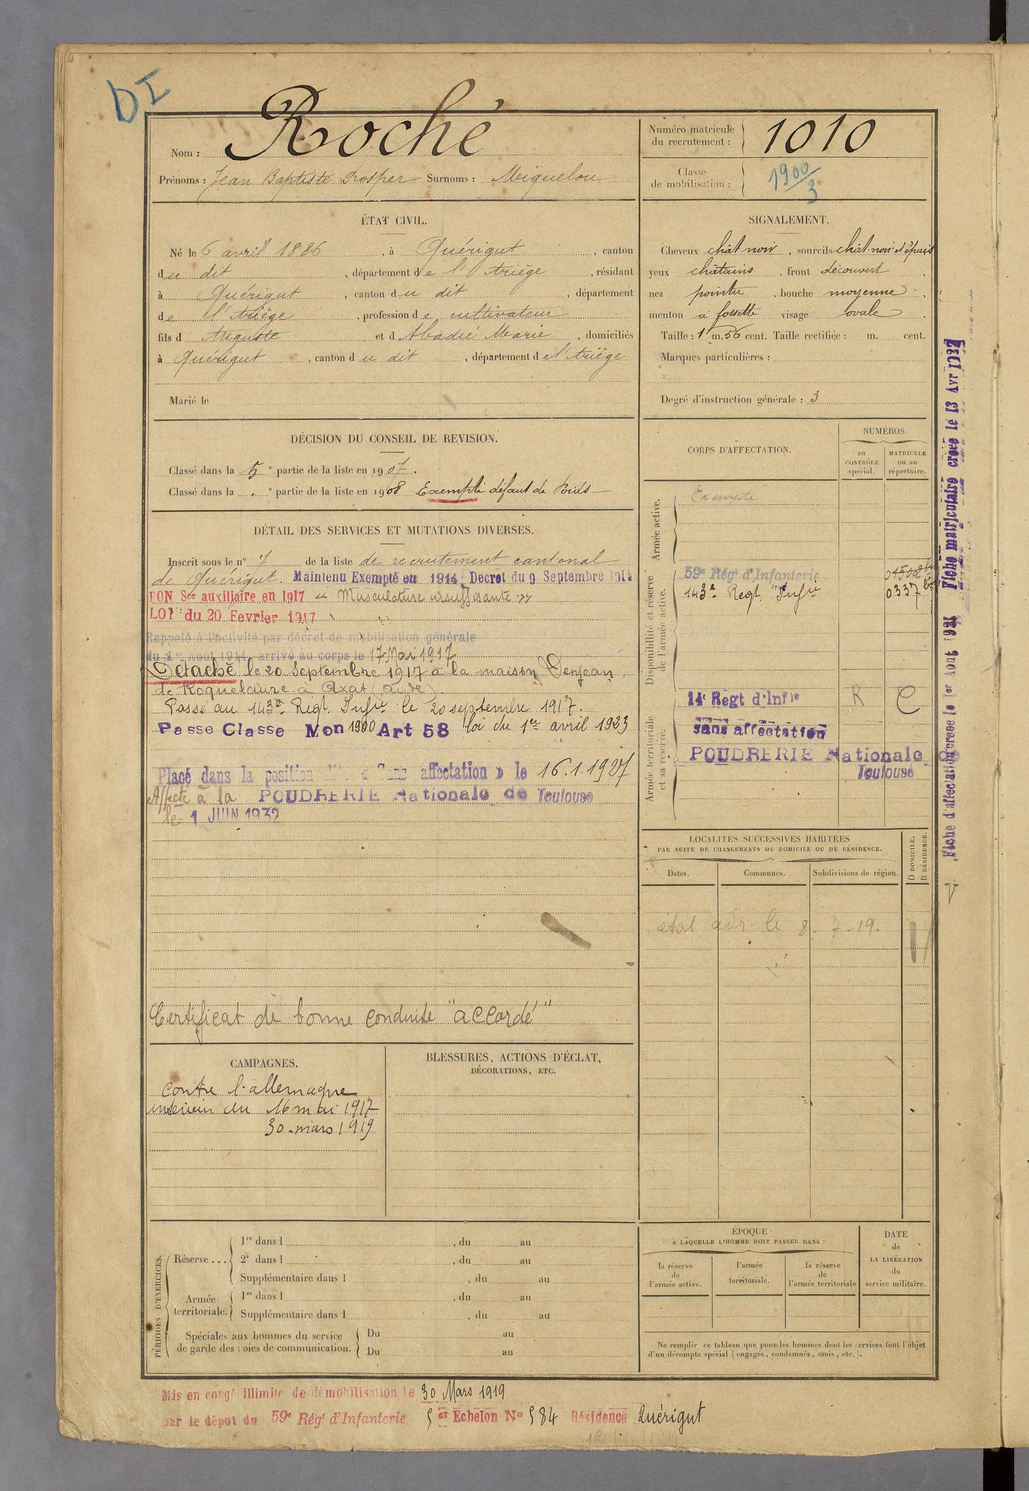 DI
Nom : Roché
Prénoms : Jean Baptiste Prosper Surnoms : Miquelou
Numéro matricule du recrutement : 1010
Classe de mobilisation : 1900/3
ÉTAT CIVIL.
Né le 6 avril 1886, à Quérigut, canton
du dit, département de l'Ariège, résidant
à Quérigut, canton du dit, département
de l'Ariège, profession de cultivateur
fils d'Auguste et d'Abadie Marie, domiciliés
à Quérigut, canton du dit, département de l'Ariège
Marié le
SIGNALEMENT.
Cheveux chât noir, sourcils chât noir et épais
yeux châtains, front découvert
nez pointu, bouche moyenne
menton à fossette visage ovale
Taille : 1 m. 56 cent. Taille rectifiée : m. cent.
Marques particulières :
Degré d'instruction générale : 3
DÉCISION DU CONSEIL DE REVISION.
Classé dans la 5e partie de la liste en 1907.
Classé dans la . e partie de la liste en 1908 Exempté défaut de Poids
DÉTAIL DES SERVICES ET MUTATIONS DIVERSES.
Inscrit sous le n° 7 de la liste de recrutement cantonal
de Quérigut. Maintenu Exempté en 1914, Decret du 9 Septembre 1914
BON Sce auxiliaire en 1917 "Musculature insuffisante"
LOI du 20 Fevrier 1917
Rappelé à l'activité par décret de mobilisation générale
du 1er Août 1914, arrivé au corps le 17 Mai 1917
Détaché le 20 Septembre 1917 à la maison
de Roquelaure à Axat (Aude)
Passé au 143e Régt Infie le 20 septembre 1917.
Passe Classe Mon 1900 Art 58 loi du 1er avril 1923
Placé dans la position dite « Sans affectation » le 16.1.1927
Affecté à la POUDRERIE Nationale de Toulouse
le 1 JUIN 1932
Certificat de bonne conduite "accordé"
CORPS D'AFFECTATION.
NUMÉROS
au CONTRÔLE spécial.
MATRICULE ou au répertoire.
Armée active.
Exempté
Disponibilité et réserve de l'armée active.
59e Régt d'Infanterie
143e Régt Infie 0337
Armée territoriale et sa réserve.
14e Regt d'Infie R C
sans affectation
POUDRERIE Nationale
Toulouse
LOCALITÉS SUCCESSIVES HABITÉES
PAR SUITE DE CHANGEMENTS DE DOMICILE OU DE RÉSIDENCE.
Dates.
Communes.
Subdivisions de région.
D DOMICILE.
R RÉSIDENCE.
le 8-7-19.
Fiche d'affectation creee le 1er Aout 1921 Fiche matriculaire creee le 13 Avr 1932
CAMPAGNES.
Contre l'allemagne
intérieur du 16 mai 1917
30 mars 1919
BLESSURES, ACTIONS D'ÉCLAT,
DÉCORATIONS, ETC.
PÉRIODES D'EXERCICES.
Réserve...
1re dans l , du au
2e dans l , du au
Supplémentaire dans l , du au
Armée territoriale.
1re dans l , du au
Supplémentaire dans l , du au
Spéciales aux hommes du service de garde des voies de communication.
Du au
Du au
ÉPOQUE
À LAQUELLE L'HOMME DOIT PASSER DANS :
la réserve de l'armée active.
l'armée territoriale.
la réserve de l'armée territoriale
DATE
de
LA LIBÉRATION
du
service militaire.
Ne remplir ce tableau que pour les hommes dont les services font l'objet
d'un décompte spécial (engagés, condamnés, omis, etc.).
Mis en congé illimité de démobilisation le 30 Mars 1919
par le dépot du 59e Régt d'Infanterie 5er Echelon N° 584 Résidence Quérigut